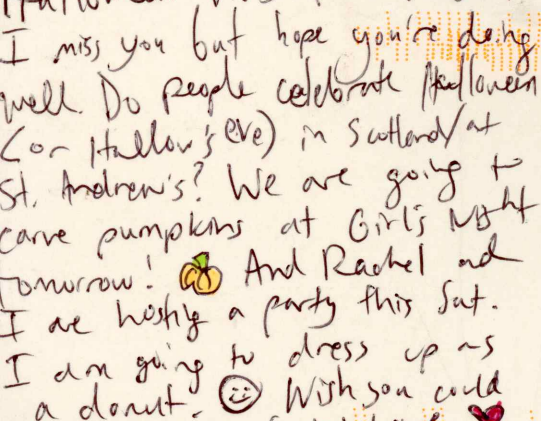 I miss you but hope you're doing
well. Do people celebrate Halloween
(or Hallow's eve) in Scotland/at
St. Andrew's? We are going to
carve pumpkins at Girl's Night
tomorrow! And Rachel and
I are hosting a party this Sat.
I am going to dress up as
a donut. Wish you could